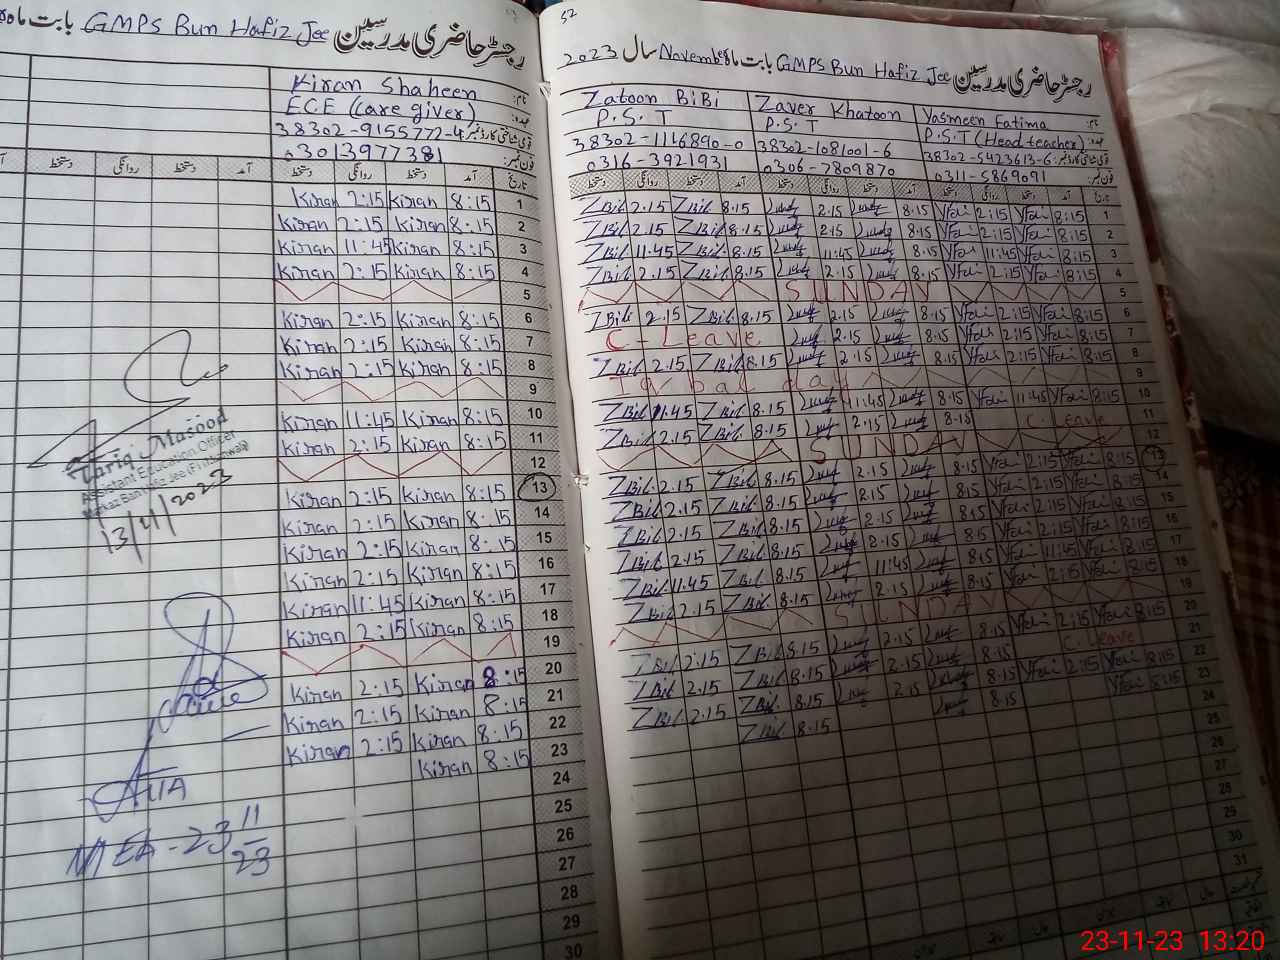 بابت ماہ GMPS Bun Hafiz Jee رجسٹر حاضری مدرسین
نام: Kiran Shaheen
عہدہ: ECE (Care giver)
قومی شناختی کارڈ نمبر: 38302-9155772-4
فون نمبر: 03013977381
تاریخ آمد دستخط روانگی دستخط آمد دستخط روانگی دستخط
1 8:15 Kiran 2:15 Kiran
2 8:15 Kiran 2:15 Kiran
3 8:15 Kiran 11:45 Kiran
4 8:15 Kiran 2:15 Kiran
5
6 8:15 Kiran 2:15 Kiran
7 8:15 Kiran 2:15 Kiran
8 8:15 Kiran 2:15 Kiran
9
10 8:15 Kiran 11:45 Kiran
11 8:15 Kiran 2:15 Kiran
12
13 8:15 Kiran 2:15 Kiran
14 8:15 Kiran 2:15 Kiran
15 8:15 Kiran 2:15 Kiran
16 8:15 Kiran 2:15 Kiran
17 8:15 Kiran 11:45 Kiran
18 8:15 Kiran 2:15 Kiran
19
20 8:15 Kiran 2:15 Kiran
21 8:15 Kiran 2:15 Kiran
22 8:15 Kiran 2:15 Kiran
23 8:15 Kiran
24
25
26
27
28
29
30
Tariq Masood
Assistant Education Officer
13/11/2023
MEA-23 11/23
52
رجسٹر حاضری مدرسین GMPS Bun Hafiz Jee بابت ماہ November سال 2023
نام: Yasmeen Fatima Zaver Khatoon Zatoon BiBi
عہدہ: P.S.T (Head teacher) P.S.T P.S.T
قومی شناختی کارڈ نمبر: 38302-5423613-6 38302-1081001-6 38302-1146890-0
فون نمبر: 0311-5869091 0306-7809870 0316-3921931
تاریخ آمد دستخط روانگی دستخط آمد دستخط روانگی دستخط آمد دستخط روانگی دستخط
1 8:15 Yfai 2:15 Yfai 8.15 2.15 8.15 ZBil 2.15 ZBil
2 8:15 Yfai 2:15 Yfai 8.15 2.15 8.15 ZBil 2.15 ZBil
3 8:15 Yfai 11:45 Yfai 8.15 11:45 8.15 ZBil 11.45 ZBil
4 8:15 Yfai 2:15 Yfai 8.15 2.15 8.15 ZBil 2.15 ZBil
5 SUNDAY
6 8:15 Yfai 2:15 Yfai 8.15 2.15 8.15 ZBil 2.15 ZBil
7 8:15 Yfai 2:15 Yfai 8.15 2.15 C-Leave
8 8:15 Yfai 2:15 Yfai 8.15 2.15 8.15 ZBil 2.15 ZBil
9 Iqbal day
10 8:15 Yfai 11:45 Yfai 8.15 11:45 8.15 ZBil 11.45 ZBil
11 C.Leave 8.15 2.15 8.15 ZBil 2.15 ZBil
12 SUNDAY
13 8:15 Yfai 2:15 Yfai 8.15 2.15 8.15 ZBil 2.15 ZBil
14 8:15 Yfai 2:15 Yfai 8.15 2.15 8.15 ZBil 2.15 ZBil
15 8:15 Yfai 2:15 Yfai 8.15 2.15 8.15 ZBil 2.15 ZBil
16 8:15 Yfai 2:15 Yfai 8.15 2.15 8.15 ZBil 2.15 ZBil
17 8:15 Yfai 11:45 Yfai 8.15 11:45 8.15 ZBil 11.45 ZBil
18 8:15 Yfai 2:15 Yfai 8.15 2.15 8.15 ZBil 2.15 ZBil
19 SUNDAY
20 8:15 Yfai 2:15 Yfai 8.15 2.15 8.15 ZBil 2:15 ZBil
21 C.Leave 8.15 2.15 8.15 ZBil 2.15 ZBil
22 8:15 Yfai 2:15 Yfai 8.15 2.15 8.15 ZBil 2.15 ZBil
23 8:15 Yfai 8.15 8.15 ZBil
24
25
26
27
28
29
30
31
23-11-23 13:20